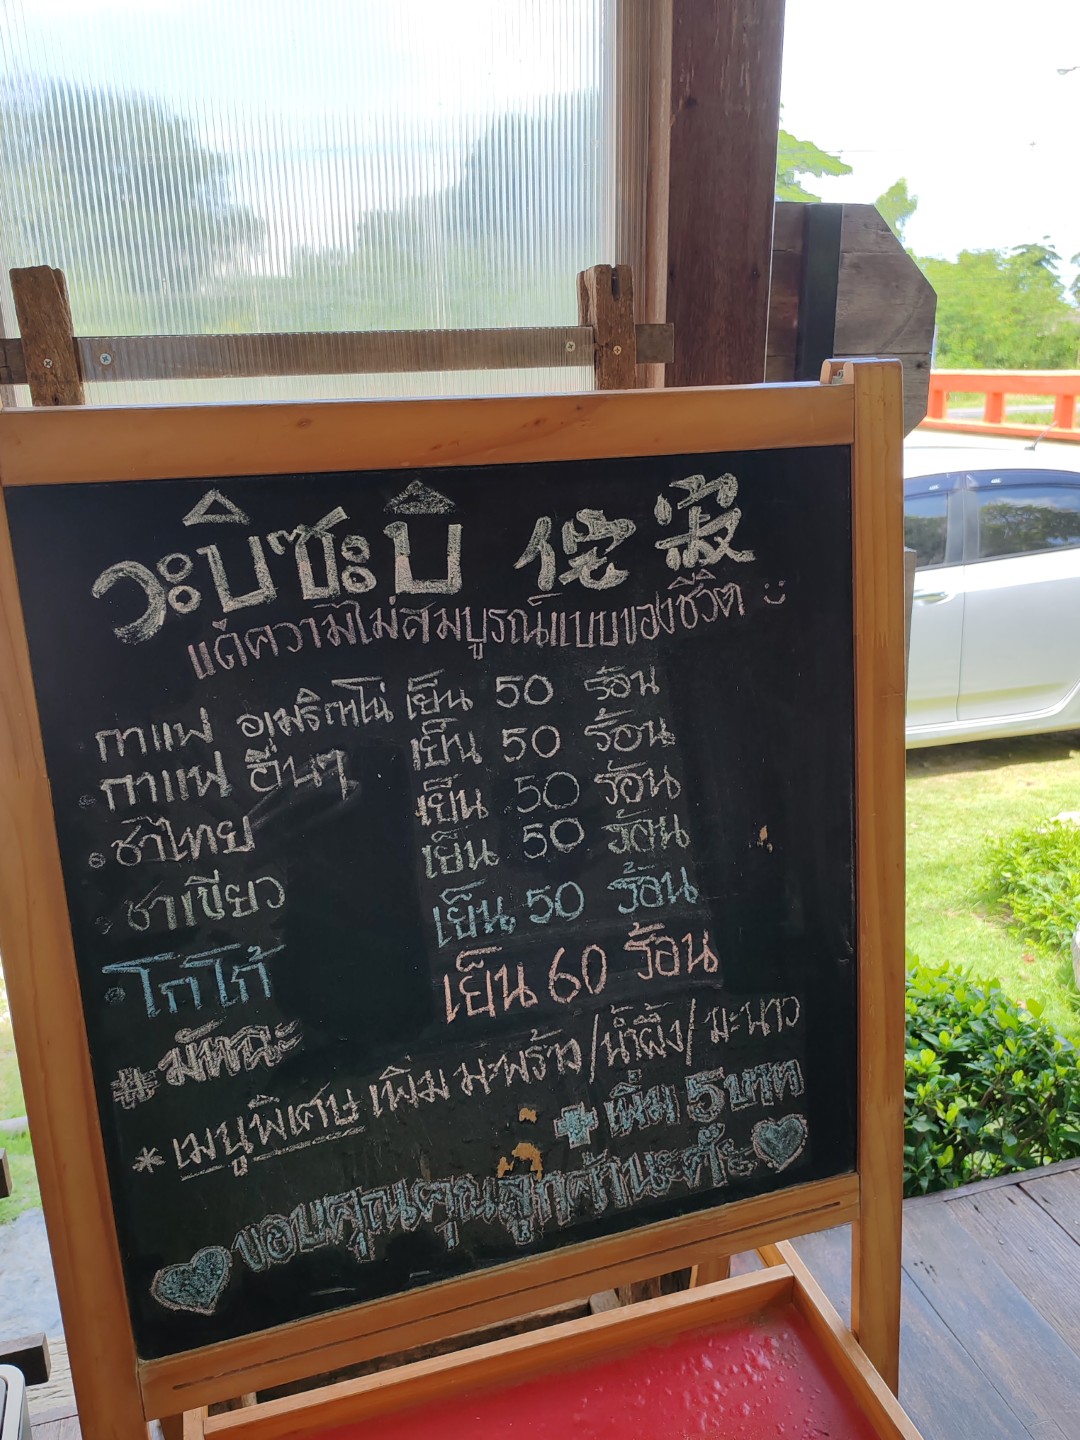 วะบิซะบิ 侘寂
แด่ความไม่สมบูรณ์แบบของชีวิต
กาแฟ อเมริกาโน่ เย็น 50 ร้อน
กาแฟ อื่นๆ เย็น 50 ร้อน
ชาไทย เย็น 50 ร้อน
ชาเขียว เย็น 50 ร้อน
โกโก้ เย็น 50 ร้อน
#มัทฉะ เย็น 60 ร้อน
* เมนูพิเศษ เพิ่ม มะพร้าว/น้ำผึ้ง/มะนาว
+ เพิ่ม 5 บาท
ขอบคุณคุณลูกค้านะคะ